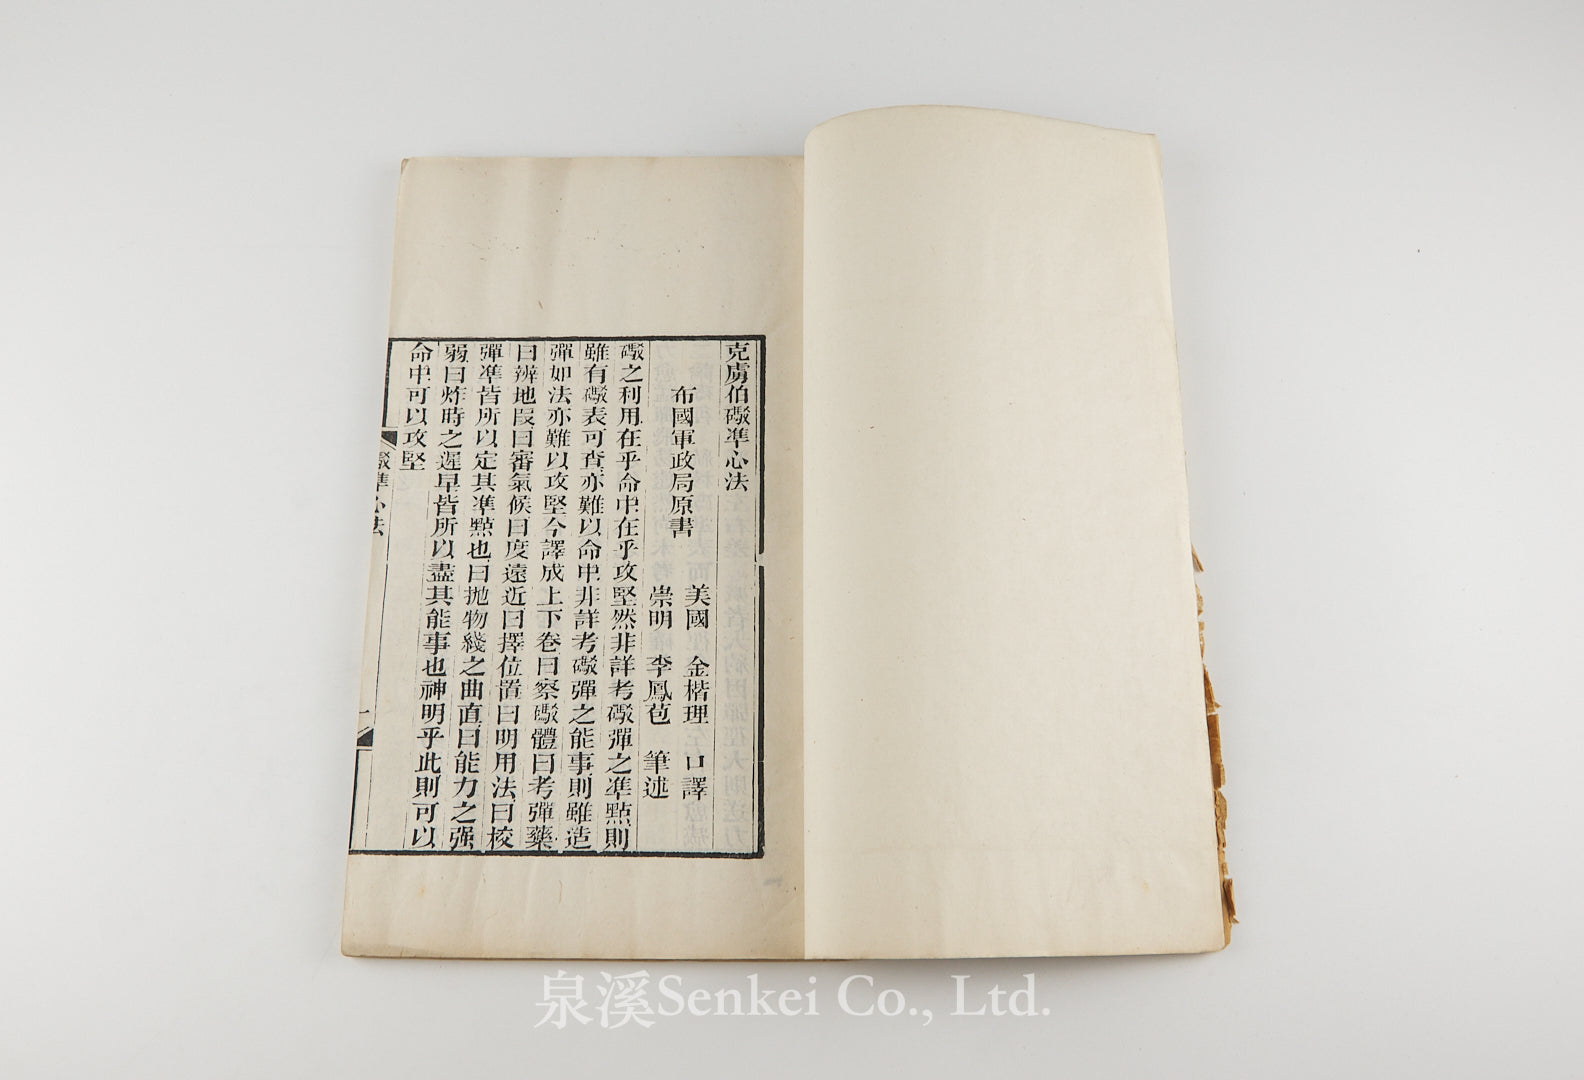 克虜伯礮準心法
布國軍政局原書
美國 金楷理 口譯
崇明 李鳳苞 筆述
礮之利用在乎命中在乎攻堅然非詳考礮彈之準點則
雖有礮表可查亦難以命中非詳考礮彈之能事則雖造
彈如法亦難以攻堅今譯成上下卷曰察礮體曰考彈藥
曰辨地段曰審氣候曰度遠近曰擇位置曰明用法曰校
彈準皆所以定其準點也曰拋物綫之曲直曰能力之强
弱曰炸時之遲早皆所以盡其能事也神明乎此則可以
命中可以攻堅
礮準心法
一
泉溪Senkei Co., Ltd.